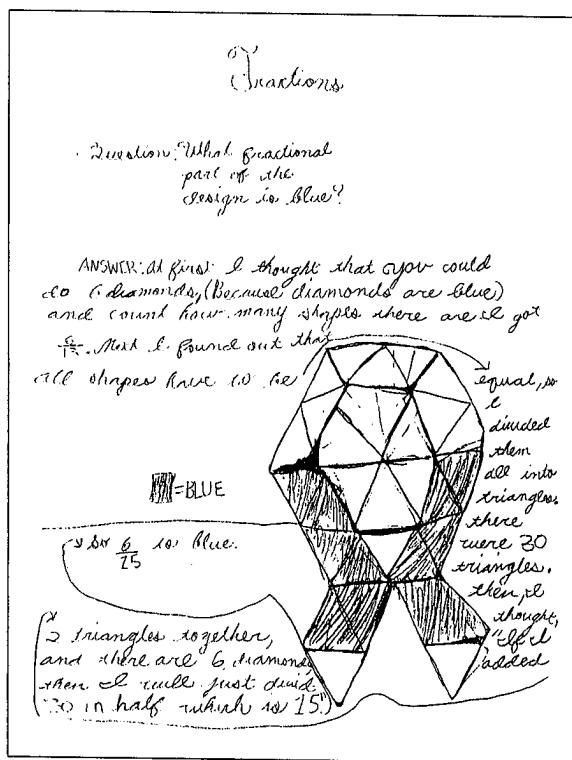 Fractions
Question: What fractional
part of the
design is blue?
ANSWER: At first I thought that you could
do 6 diamonds, (Because diamonds are blue)
and count how many shapes there are I got
Next I found out that
all shapes have to be
equal, so
I
divided
them
all into
triangles.
there
were 30
triangles.
then, I
thought,
"If I
added
=BLUE
So 6/15 is blue.
2 triangles together,
and there are 6 diamonds
then I will just divid
30 in half which is 15.")